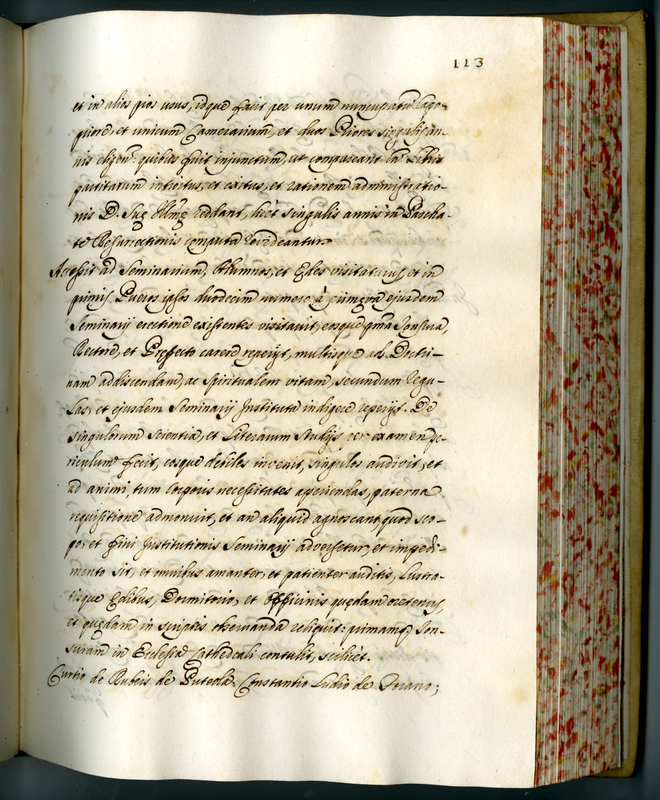 113
et in alios pios usus, idque fecit per unum nuncupatū
et unicum Camerarium, et duos Priores singulis an-
nis quibus fuit injunctum, ut compareant in libris
partitarum introitus, et exitus, et rationem administratio-
nis D. Suę reddant, licet singulis annis in Pascha-
te Resurrectionis computa revideantur.
Accessit ad Seminarium, Alumnos, et Ędes visitaturus, et in
primis Pueros ipsos duodecim numero à ejusdem
Seminarij erectione existentes visitavit, eosque Tonsura,
Rectore, et Prefecto carere reperijt, multisque ad Doctri-
nam addiscendam, ac spiritualem vitam, secundum Regu-
las, et ejusdem Seminarij Instituta indigere reperijt. De
singulorum scientia, et Literarum studijs per examen pe-
riculum fecit, eosque debiles invenit, singulos audivit, et
ad animi, tum corporis necessitates aperiendas, paterna
requisitione admonuit, et an aliquid agnoscant, quod sco-
po, et fini Institutionis Seminarij adversetur, et impedi-
mento sit, et omnibus amanter, et patienter auditis, Lustra-
tisque Ędibus, Dormitorio, et officinis quędam oretenus,
et quędam in scriptis observanda reliquit: primamq Ton-
suram in Ecclesia Cathedrali contulit, scilicet.
Curtio de Rubeis de Constantio Ludio de